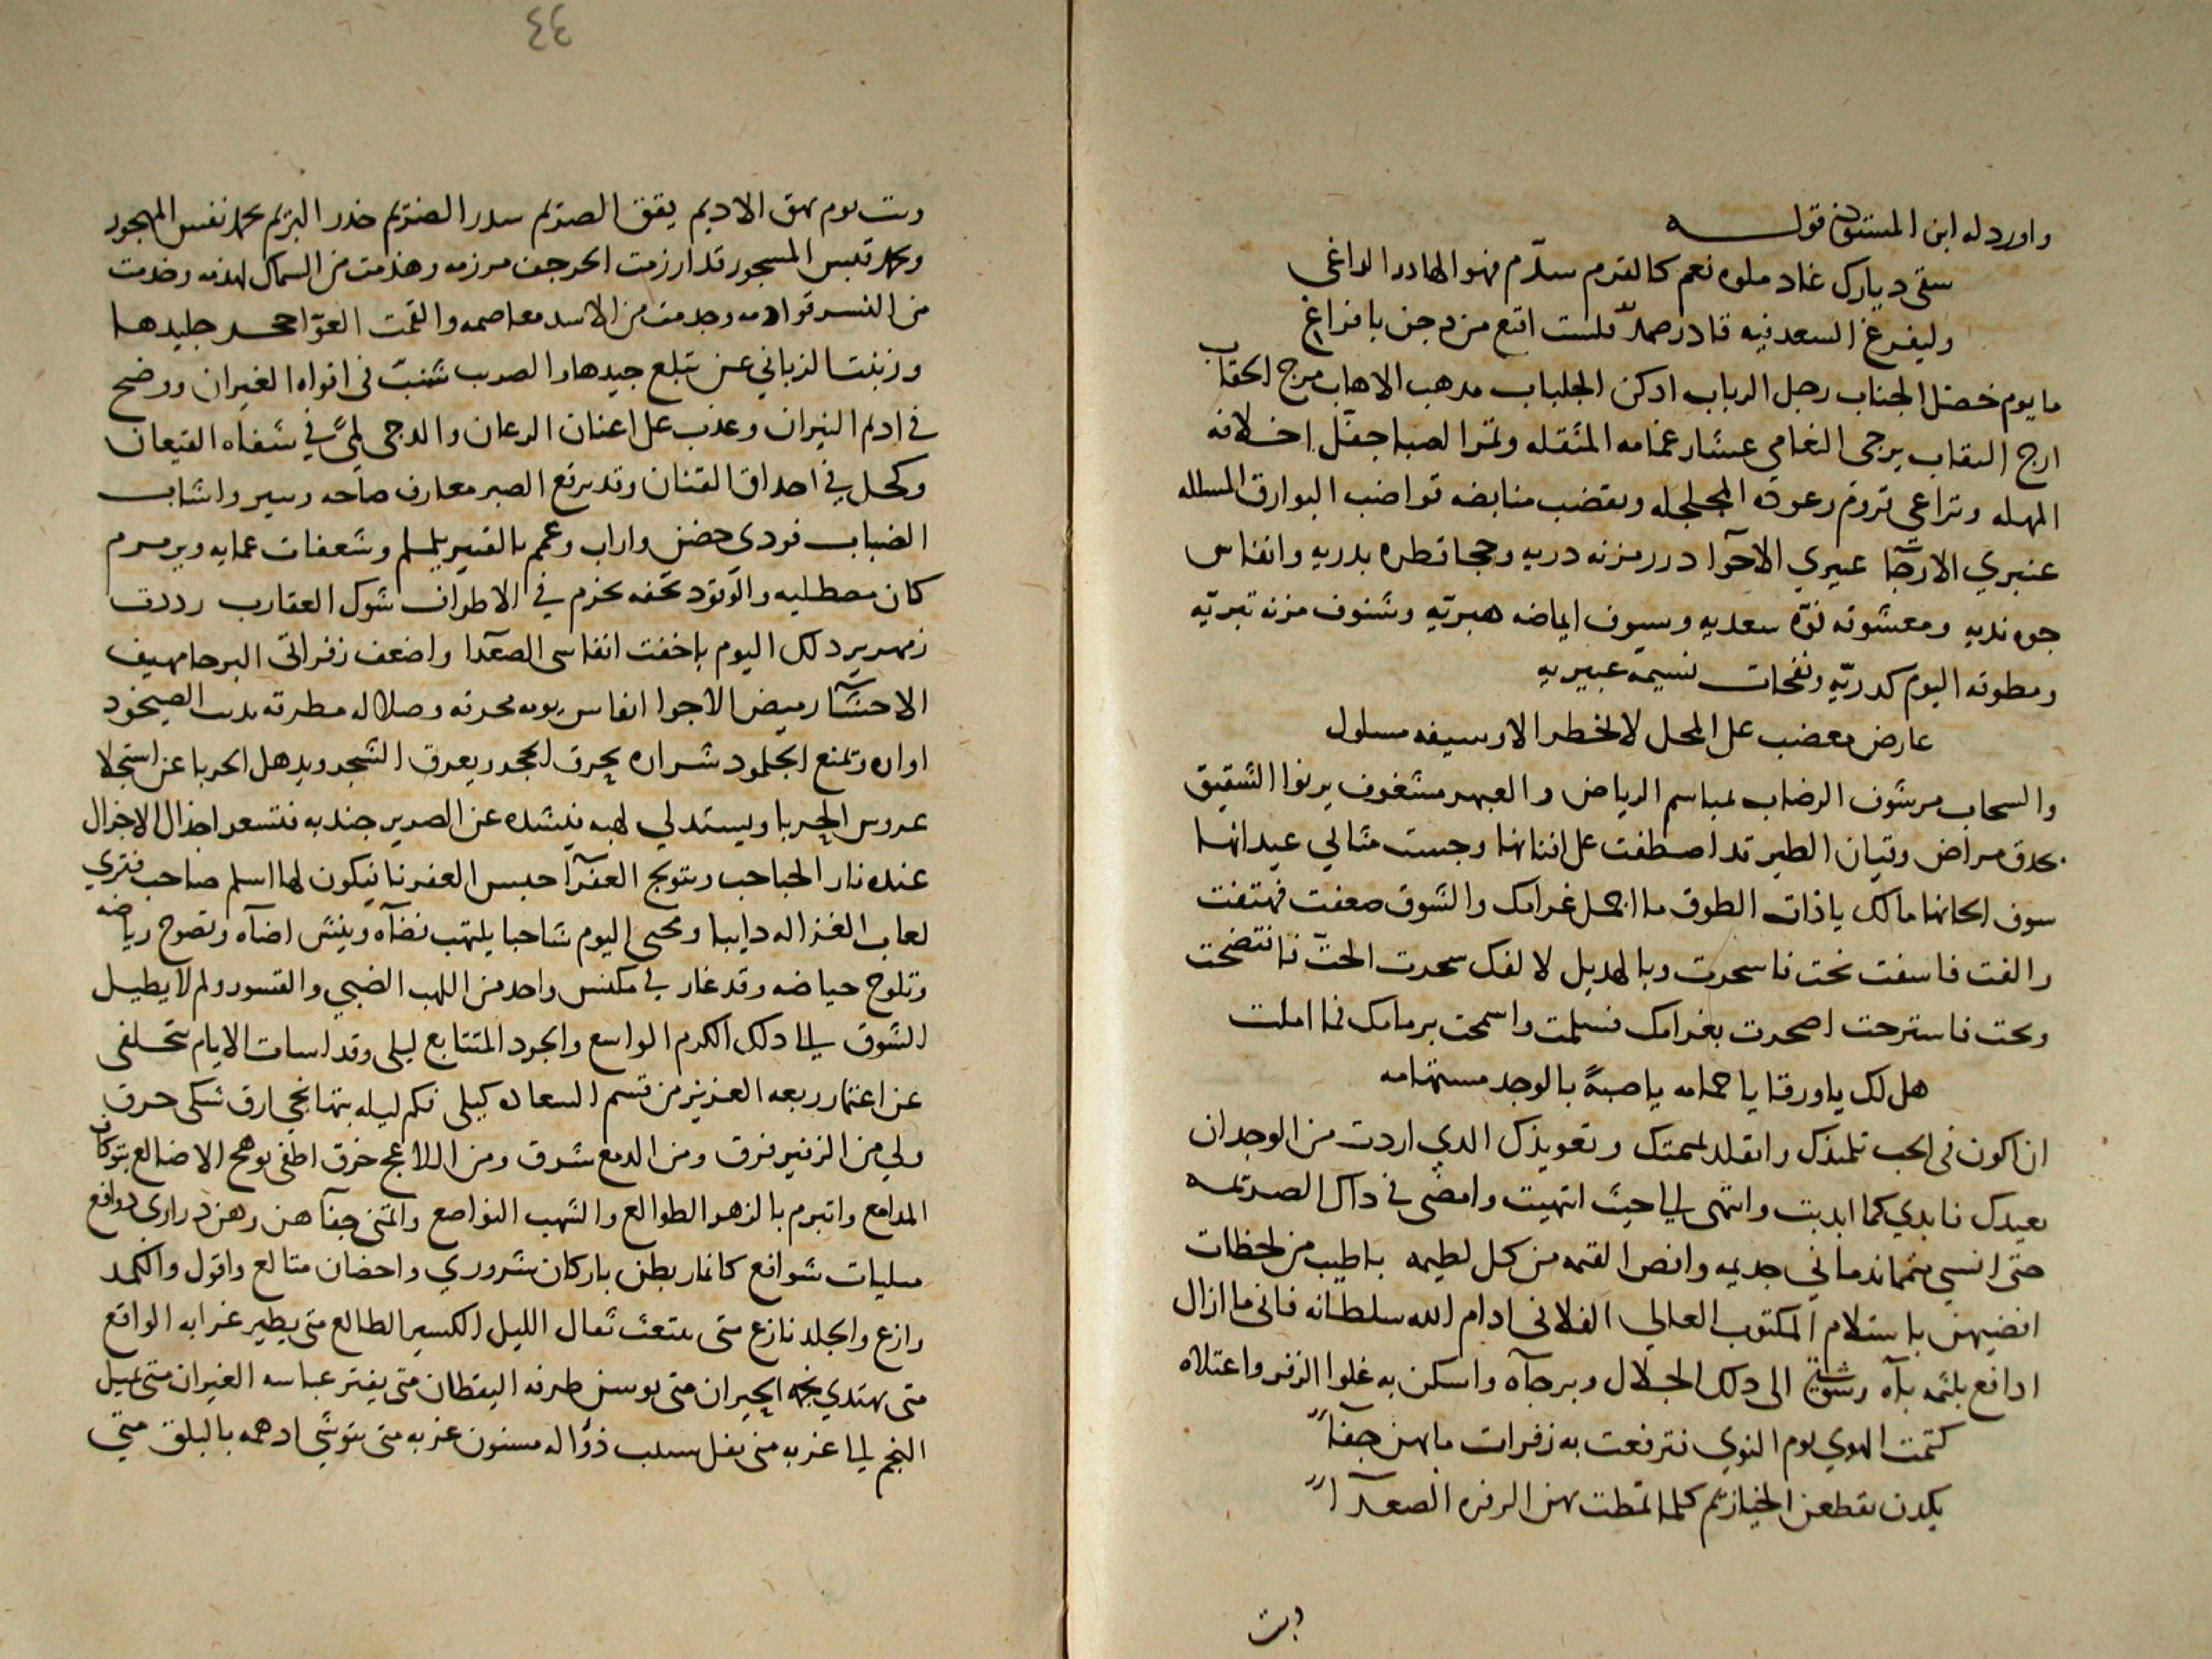 واورد له ابن المستوفى قوله
سقى ديارك غاد ملوه نعم كالقرم سدّم فهو الهادر الراغى
وليفرغ السعد فيه قادر صمد فلست اقنع من دجن بافراغ
ما يوم خضل الجناب رجل الرباب ادكن الجلباب مدهب الاهاب مرج الحقاب
ارج النقاب يرجى النعامى عشار غمامه المثقله وتمرا لصبا جفّل اخلافه
المهمله وتراعي تروم رعوده المجلجله وبقضب منابضه قواضب البوارق المسلله
عنبري الارجآ عبيري الاحوآ درر مزنه دريه وحجا قطره بدريه وانفاس
جوه نديه ومعشوقه نوّه سعديه وسيوف ايماضه هبريّه وشنوف مزنه تبريّه
ومطوقه اليوم كدريّه ونفحات نسيمه عبيريه
عارض معضب على المحل لا يخطر الا وسيفه مسلول
والسحاب مرشوف الرضاب لمباسم الرياض والعبهر مشغوف يرنوا الشقيق
بحدق مراض وقيان الطير قد اصطفت على افنانها وجست مثالي عيدانها
سوف الحانها مالك ياذات الطوق ما اجمل غرامك والشوق صعفت فهتفت
والفت فاسفت نحت فاسحرت وبالهديل لالفك سحرت الحتّ فانتضحت
وبحت فاسترحت اصحرت بغرامك فسلمت واسمحت برمامك فما املت
هل لك ياورقا يا حمامه يا صبةً بالوجد مستهامه
ان اكون فى الحب تلميذك واتقلد لميمتك وتعويذك الدي اردت من الوجدان
بعيدك فابدي كما ابديت وانتهى الي حيث انتهيت وامضى في داك الصريمه
حتى انسي بهما ندماني جديمه وانص القمه من كل لطيمه باطيب من لحظات
اقضيهن باستلام المكتوب العالي الفلانى ادام الله سلطانه فانى ما ازال
ادافع بلثمه بآه وشوقي الى دلك الجلال وبرحآه واسكن به غلوا الزفر واعتلاه
كتمت الهوي يوم النوي فترفعت به زفرات ما بهن خفآ
يكدن بقطعن الحيازيم كلما تمطت بهن الزفره الصعدآ
وبت
٤٤
وبت يوم بهق الاديم يقق الصريم سدر الضريم خدر البريم نحمد نفس المهجور
ونحمد قبس المسجور قد ارزمت الحرجف مرزمه وهذمت من السماك لهذمه وخذمت
من النسر قوادمه وجدمت من الاسد معاصمه والقمت العوّا حجر جليدها
وزبنت الزباني عن تبلع جيدها والصرب شنبٌ فى افواه الغيران ووضح
في اديم النيران وعذب على اعنان الرعان والدجى لمىً في شفاه القيعان
وكحل في احداق القنان وقد برقع الصبر معارف صاحه وسير واشاب
الضباب فودي حضن واراب وعمم بالقتير يلملم وشعفات عمايه ويرمرم
كان مصطليه والوقود تحفه بحزم في الاطراف شوك العقارب رددت
زمهرير دلك اليوم باخفت انفاسى الصعدا واضعف زفراتى البرحا مهيف
الاحشآ رميض الاجوا انفاس يومه محرقه وصلاله مطرقه بدب الصيخود
اواره وتمنع الجلمود شراره يحرق الحجر ويعرق الشجر ويدهل الحربا عن استجلا
عروس الجربا ويستدلي لهبه فيشده عن الصرير جندبه فتسعر اجذال الاجزال
عنده نار الحباحب وبتوبح العفرآ حبس العفرنا فيكون لها اسلم صاحب فتري
لعاب الغزاله دايبا ومحيى اليوم شاحبا يلتهب فضآه وينشى اضآه وتصوح رياضه
وتلوح حياضه وقد غار في مكنس واحد من اللهب الضبي والقسور ولم لا يطيل
الشوق الى دلك الكرم الواسع والجود المتتابع ليلى وقد اسات الايام تخلفى
عن اعتمار ربعه العزيز من قسم السعاده كيلى فكم ليله بتها نجي ارق شكى حرق
ولي من الزفير فرق ومن الدمع شرق ومن اللاعج خرق اطفى بوهج الاضالع بتوكاف
المدامع واتبرم بالزهر الطوالع والشهب النواصع واتمنى خفآهن وهن دراري دوافع
مبليات شوافع كانما ربطن باركان شروري واحضان متالع واقول والكمد
وازع والجلد نازع متى ينبعث ثعال الليل الكسير الطالع متى يطير غرابه الواقع
متى يهتدي نجمه الحيران متى يوسن طرفه اليقظان متى يفتر عباسه الغيران متى يميل
النجم الى غربه متى يفل سلب ذؤاله مسنون غربه متى يتوشى ادهمه بالبلق متي